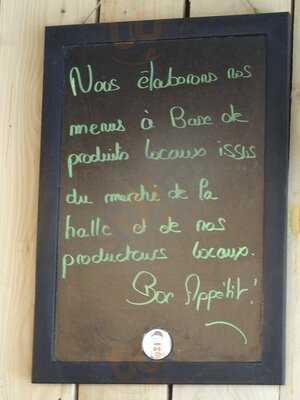 Nous élaborons nos
menus à Base de
produits locaux issus
du marché de la
halle et de nos
producteurs locaux.
Bon Appétit!